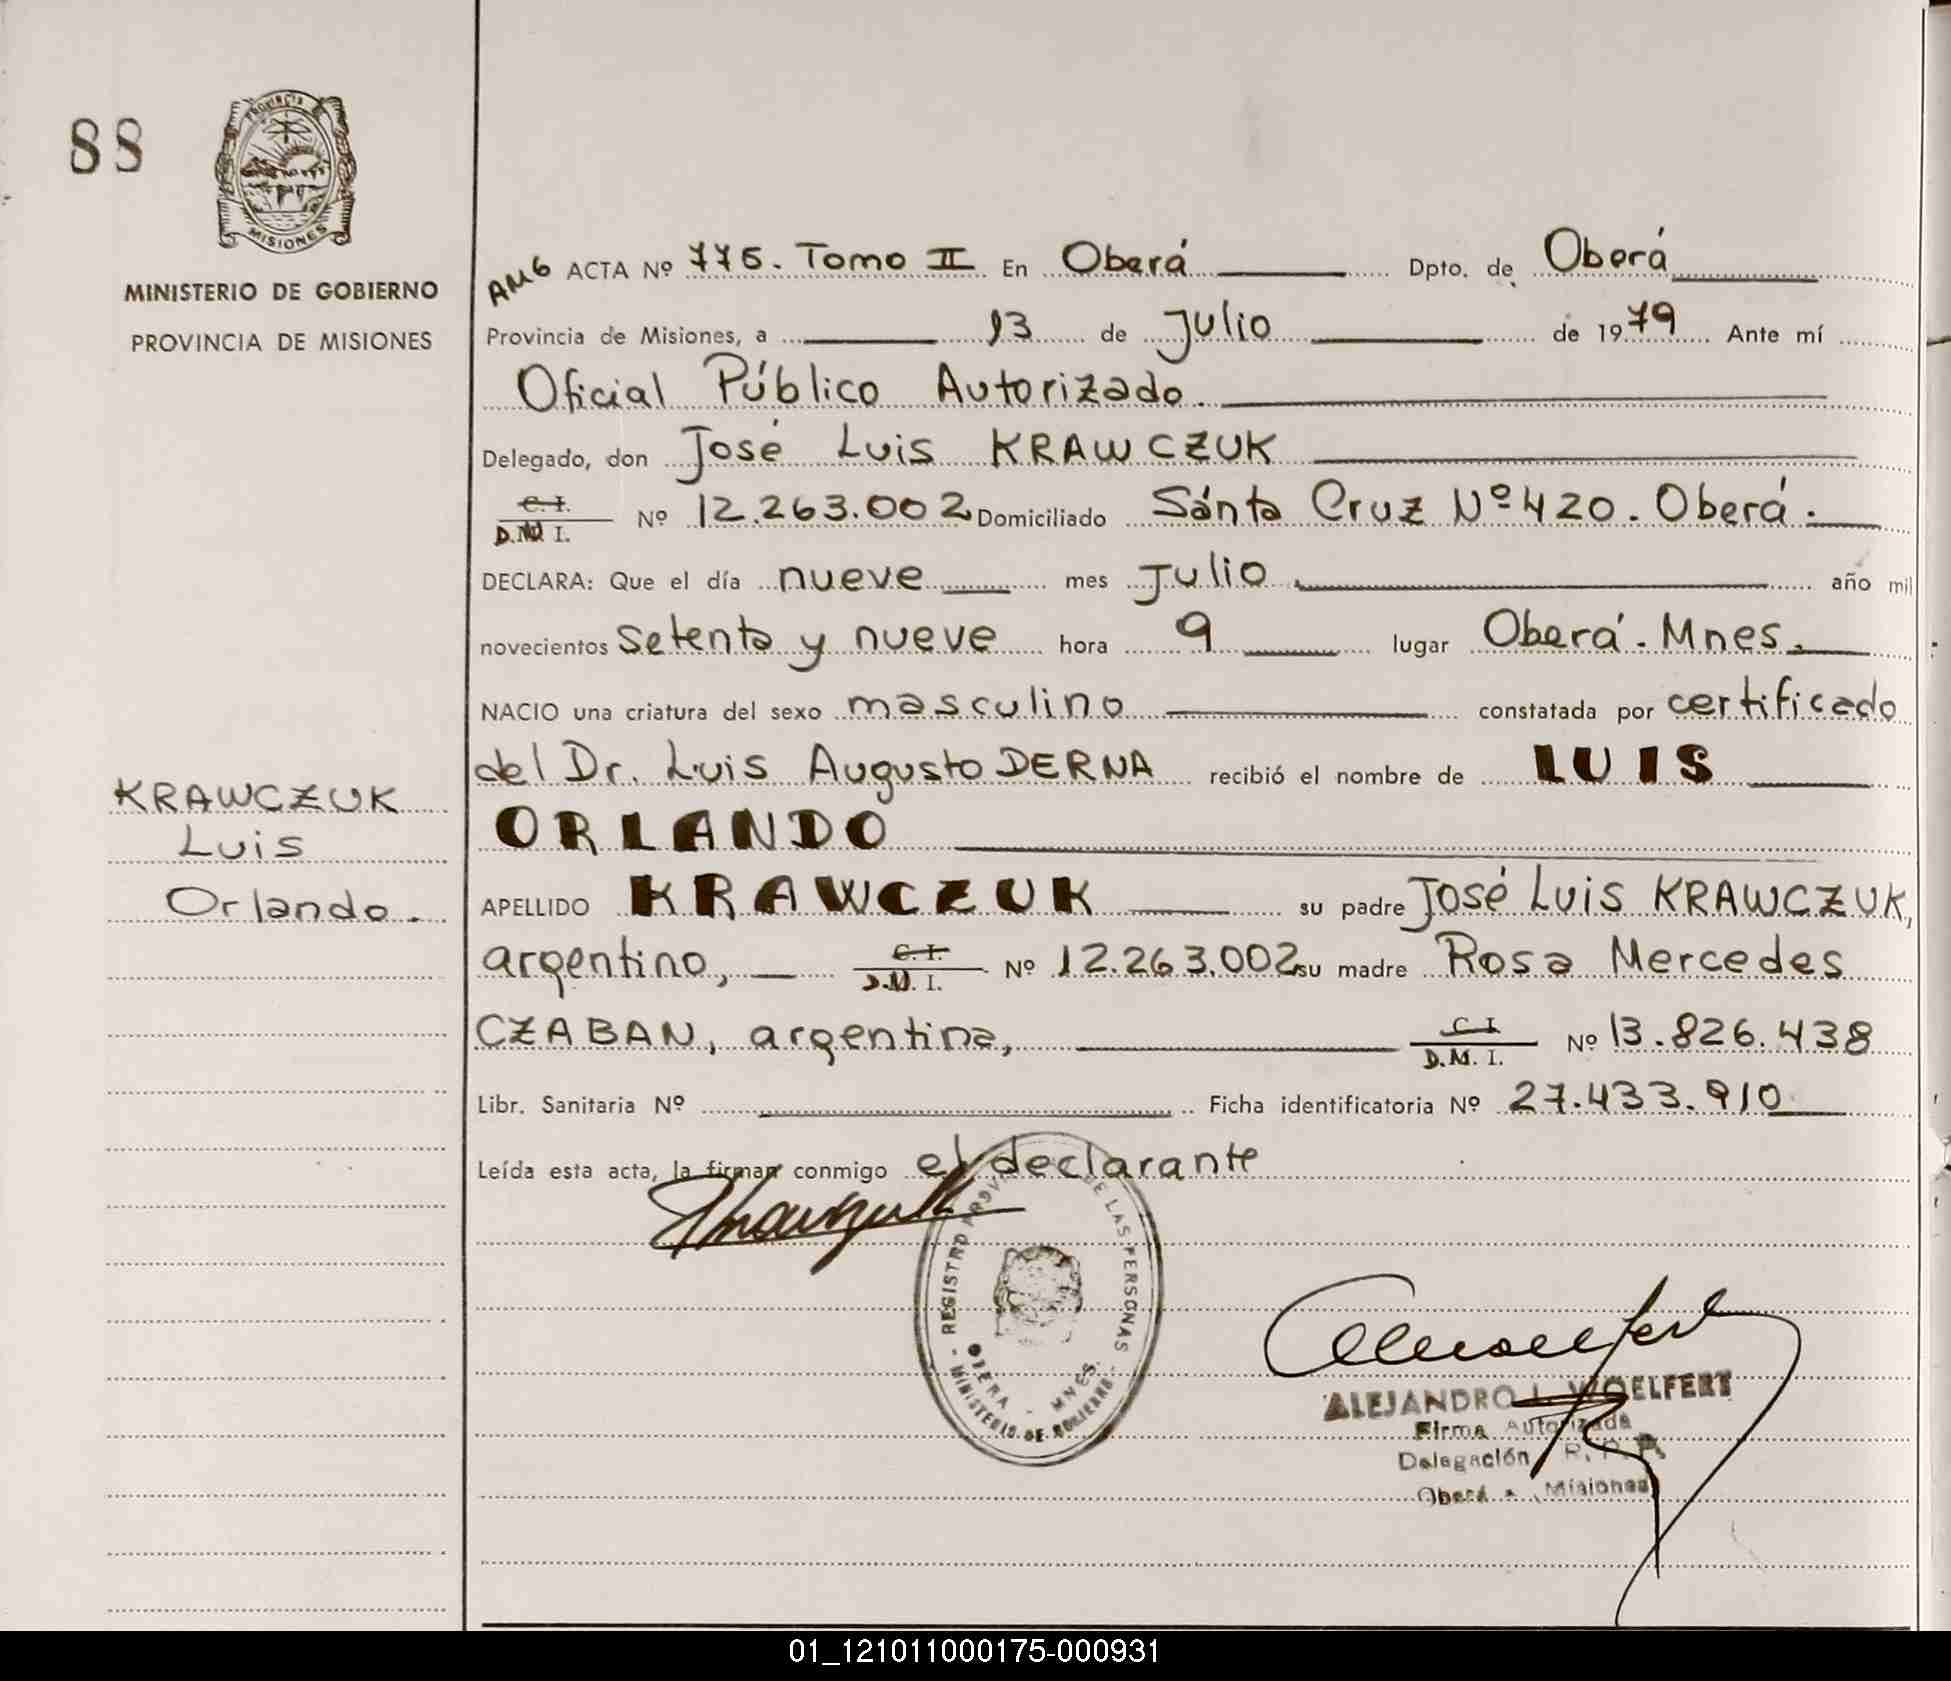 88
PROVINCIA DE
MISIONES
MINISTERIO DE GOBIERNO
PROVINCIA DE MISIONES
ACTA Nº 775. Tomo II En Oberá Dpto. de Oberá
Provincia de Misiones, a 13 de Julio de 1979 Ante mí
Oficial Público Autorizado.
Delegado, don José Luis KRAWCZUK
C. I.
D. M. I. Nº 12.263.002 Domiciliado Sánta Cruz Nº 420. Oberá.
DECLARA: Que el día nueve mes Julio año mil
novecientos setenta y nueve hora 9 lugar Oberá. Mnes.
NACIO una criatura del sexo masculino constatada por certificado
del Dr. Luis Augusto DERNA recibió el nombre de LUIS
ORLANDO
KRAWCZUK
Luis
Orlando.
APELLIDO KRAWCZUK su padre José Luis KRAWCZUK,
argentino, C. I. D. M. I. Nº 12.263.002 su madre Rosa Mercedes
CZABAN, argentina, C I D. M. I. Nº 13.826.438
Libr. Sanitaria Nº Ficha identificatoria Nº 27.433.910
Leída esta acta, la firman conmigo el declarante
REGISTRO PROV DE LAS PERSONAS
OBERA - MNES.
- MINISTERIO DE GOBIERNO -
ALEJANDRO L. WOELFERT
Firma Autorizada
Delegación R. P. P.
Oberá - Misiones
01_121011000175-000931